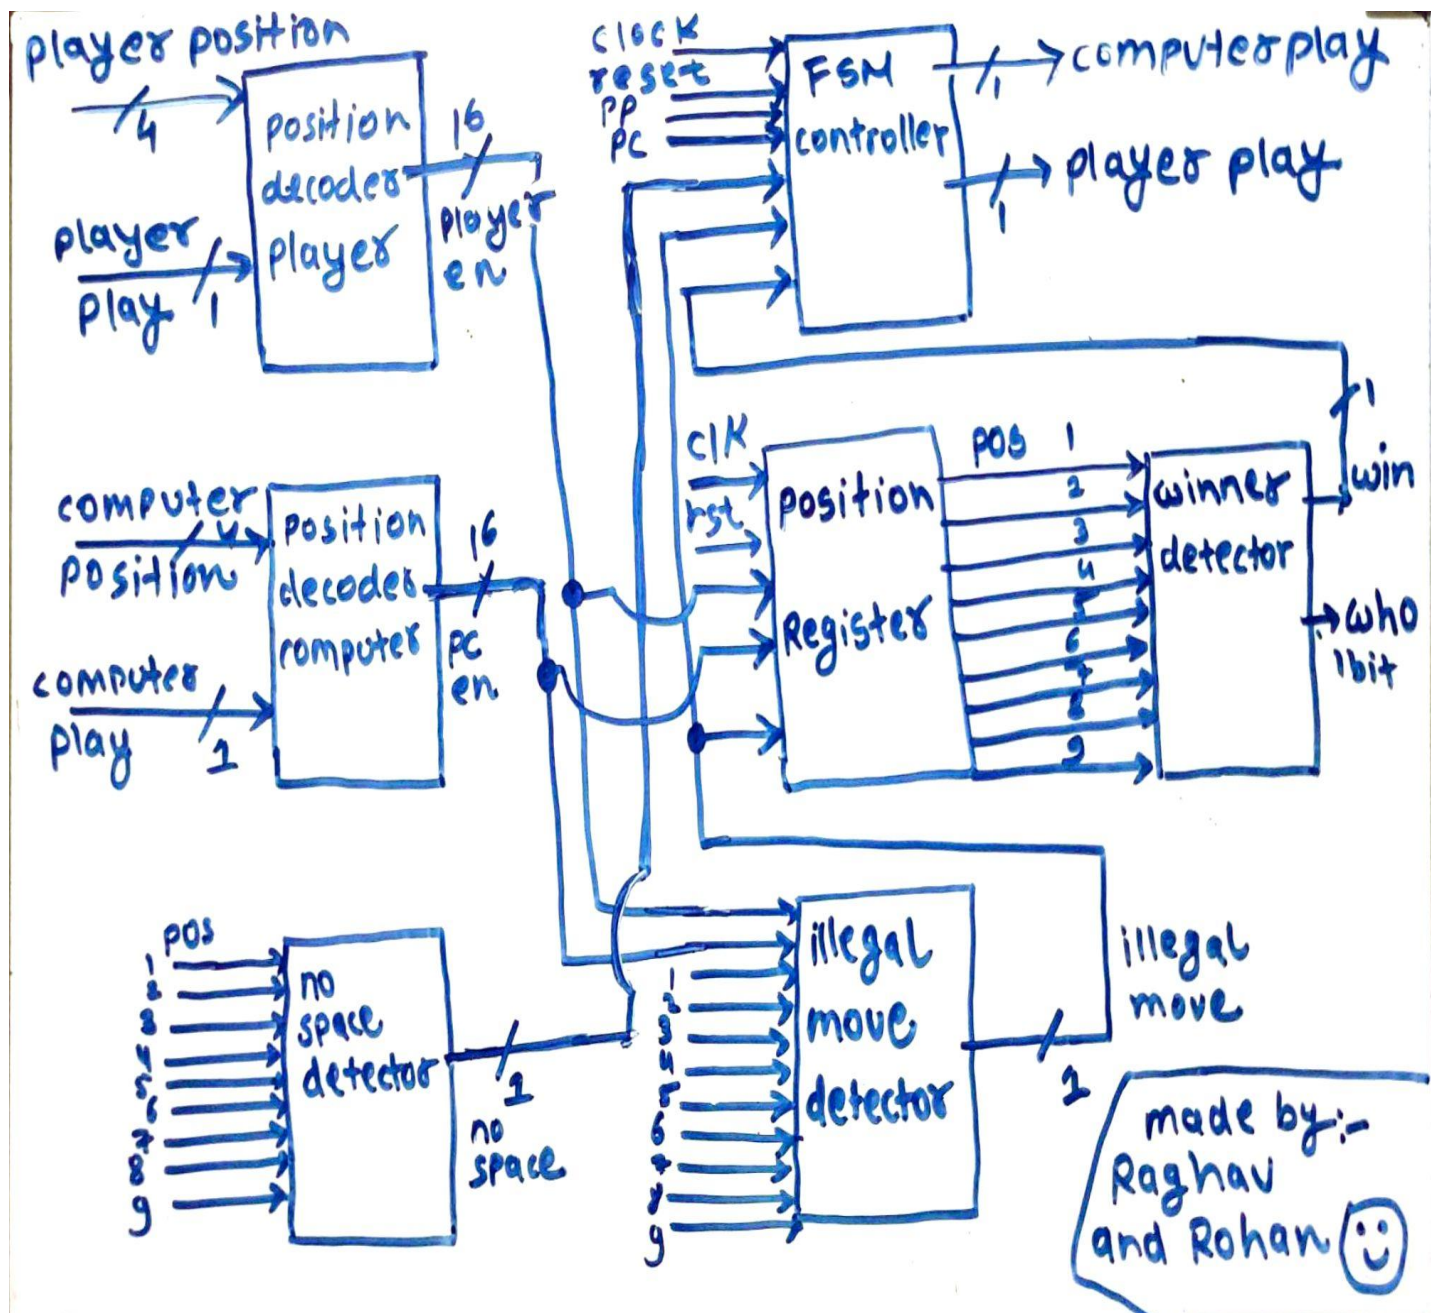 player position
4
player
play
1
position
decoder
player
16
player
en
clock
reset
PP
PC
FSM
controller
1
computer play
1
player play
computer
4
position
computer
play
1
position
decoder
computer
16
PC
en
clk
rst
position
Register
pos
1
2
3
4
5
6
7
8
9
winner
detector
1
win
who
1bit
pos
1
2
3
4
5
6
7
8
9
no
space
detector
1
no
space
1
2
3
4
5
6
7
8
9
illegal
move
detector
1
illegal
move
made by:-
Raghav
and Rohan